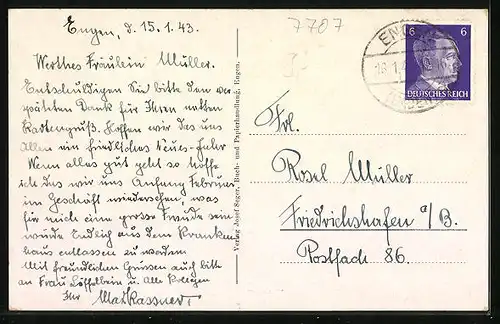 Engen, d. 15.1.43.
Werthes Fräulein Müller.
Entschuldigen Sie bitte den ver
späteten Dank für Ihren netten
Kartengruß. Hoffen wir das uns
Allen ein friedliches Neues-Jahr
Wenn alles gut geht so hoffe
ich das wir uns Anfang Februar
im Geschäft wiedersehen, was
für mich eine grosse Freude sein
würde Endlich aus dem Kranken
haus entlassen zu werden.
Mit freundlichen Grüssen auch bitte
an Frau Löffelbein u. Alle Kollegen
Ihr Max Kassner.
Verlag Josef Steger, Buch- und Papierhandlung, Engen.
7707
ENGEN
6 6
DEUTSCHES REICH
Frl.
Rosel Müller
Friedrichshafen a/B.
Postfach 86.